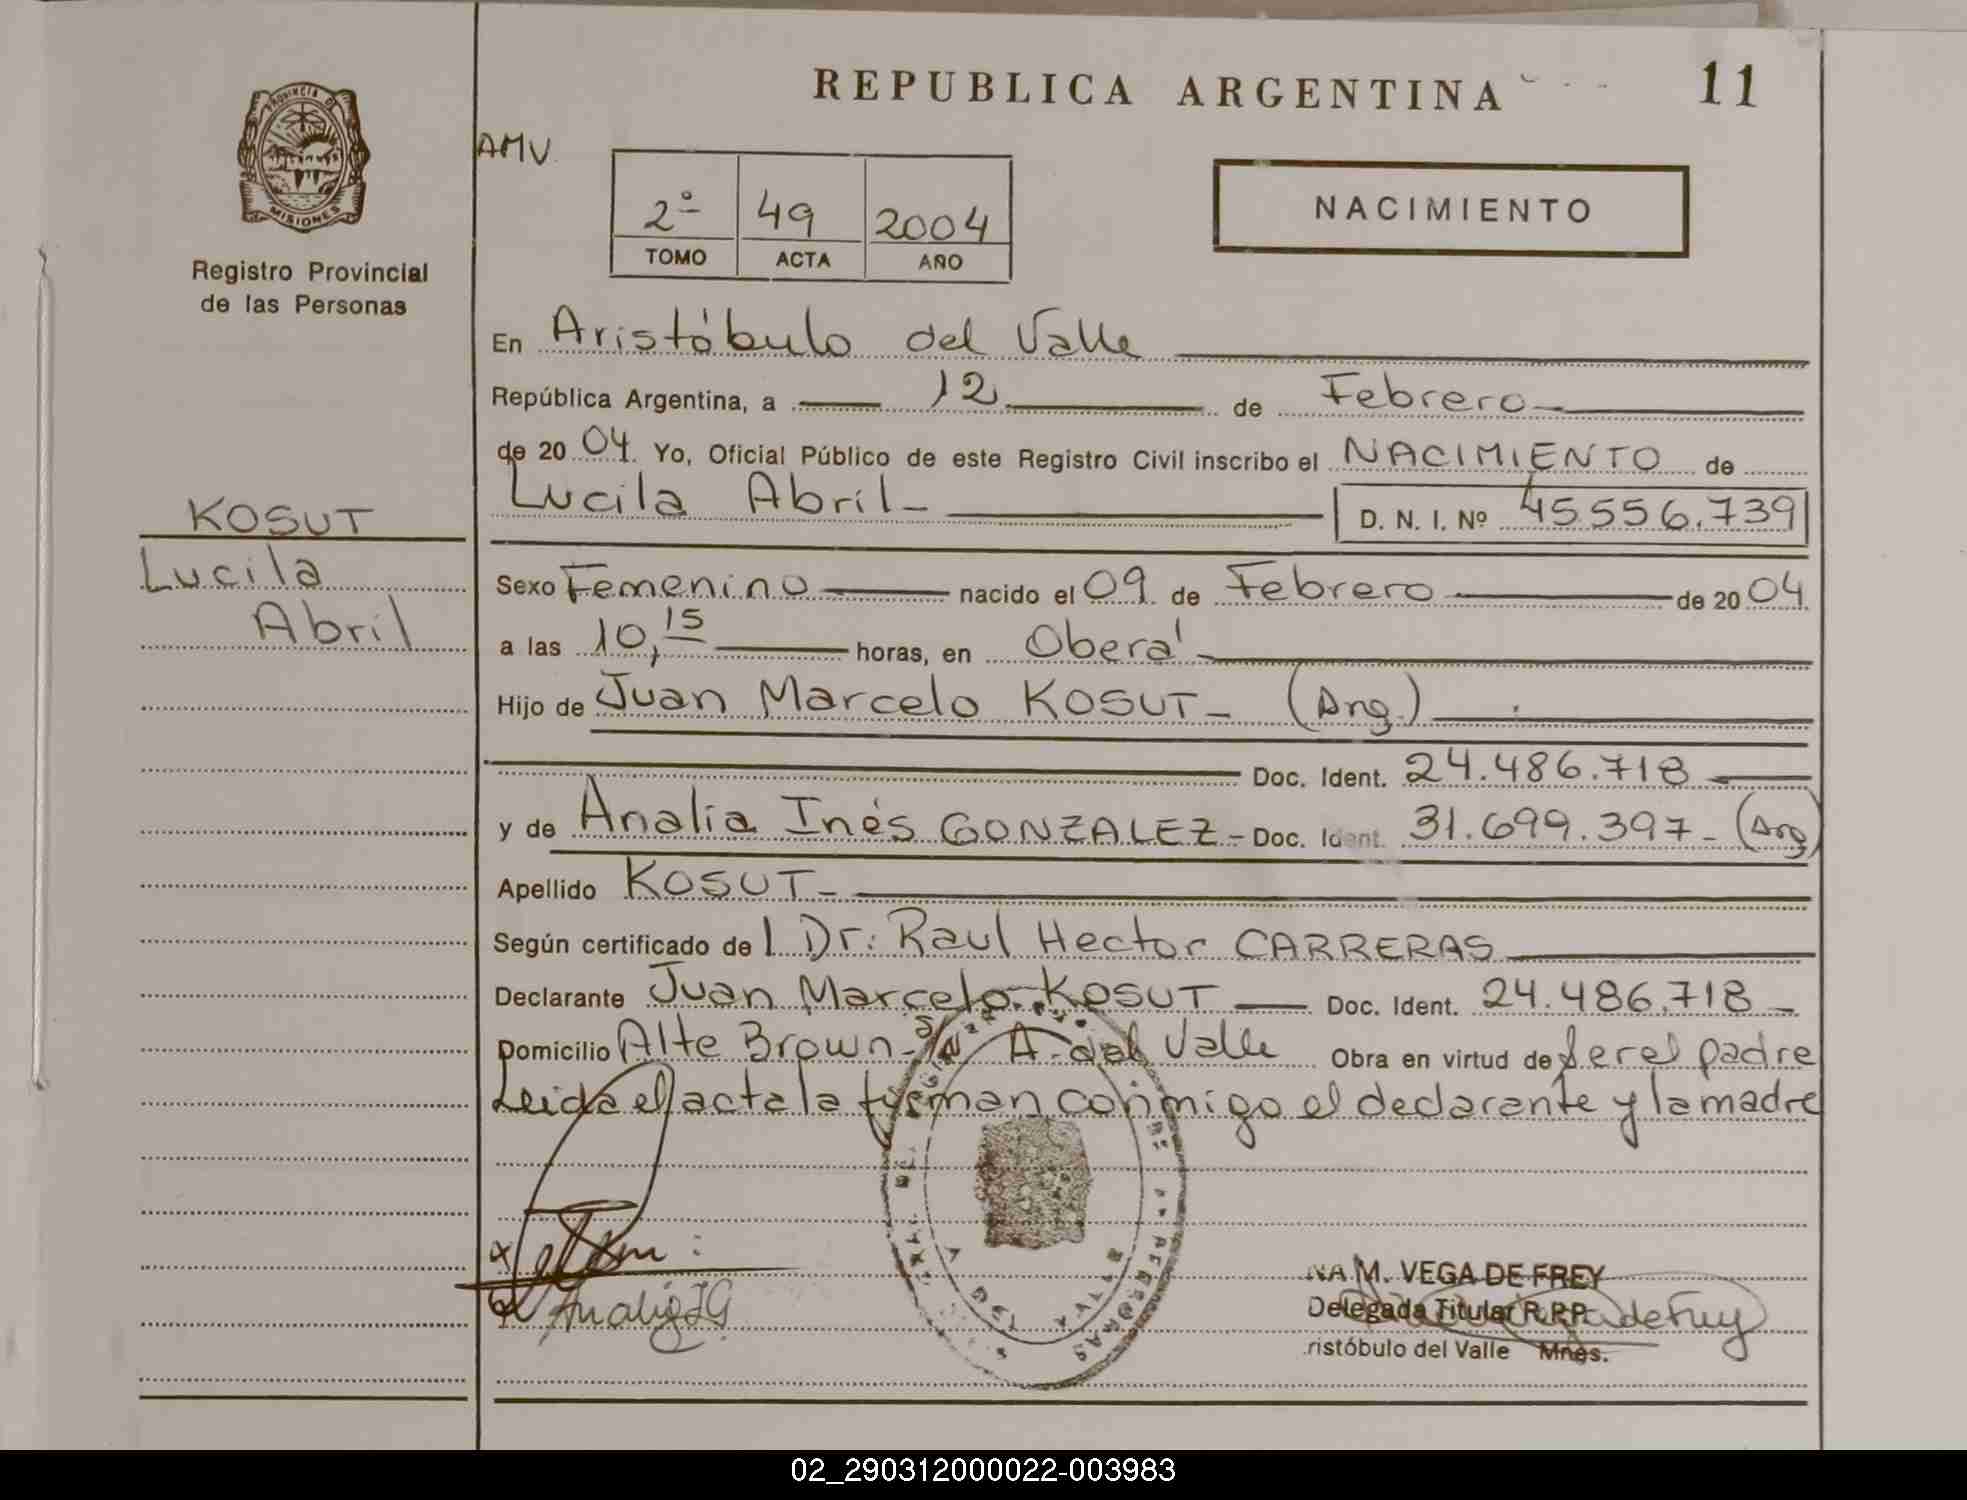 REPUBLICA ARGENTINA
11
PROVINCIA DE
MISIONES
Registro Provincial
de las Personas
AMV
2º 49 2004
TOMO ACTA AÑO
NACIMIENTO
En Aristóbulo del Valle
República Argentina, a 12 de Febrero
de 2004. Yo, Oficial Público de este Registro Civil inscribo el NACIMIENTO de
Lucila Abril - D. N. I. Nº 45.556.739
KOSUT
Lucila
Abril
Sexo Femenino nacido el 09 de Febrero de 2004
a las 10,15 horas, en Oberá
Hijo de Juan Marcelo KOSUT - (Arg.)
Doc. Ident. 24.486.718
y de Analia Inés GONZALEZ - Doc. Ident. 31.699.397 - (Arg)
Apellido KOSUT -
Según certificado de l Dr. Raul Hector CARRERAS
Declarante Juan Marcelo KOSUT Doc. Ident. 24.486.718 -
Domicilio Alte Brown - s/N A. del Valle Obra en virtud de ser el padre
Leida el acta la firman conmigo el declarante y la madre
Analia IG
NA M. VEGA DE FREY
Delegada Titular R.P.P.
ristóbulo del Valle Mnes.
02_290312000022-003983